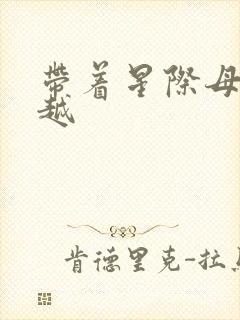 帶着星際母
越
肯德里克-拉